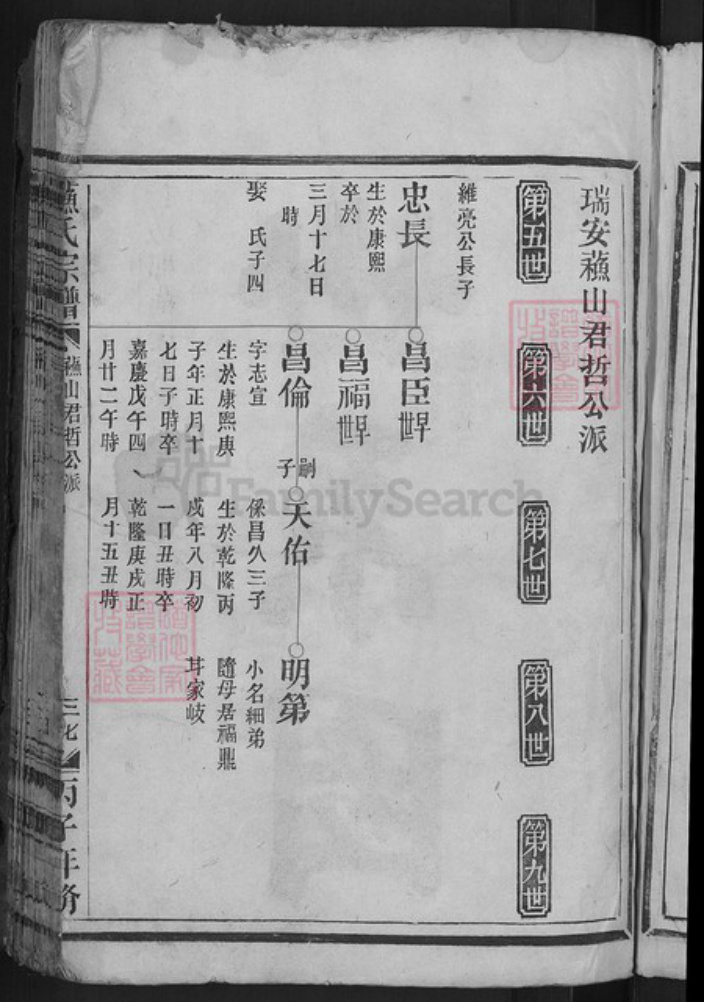 瑞安蘓山君哲公派
第五世
第六世
第七世
第八世
第九世
維亮公長子
忠長
生於康熙
卒於
三月十七日
時
娶 氏子四
昌臣
昌福
昌倫
字志宣
生於康熙庚
子年正月十
七日子時卒
嘉慶戊午四
月廿二午時
嗣子
天佑
係昌久三子
生於乾隆丙
戌年八月初
一日丑時卒
乾隆庚戌正
月十五丑時
明第
小名細弟
隨母居福鼎
茸家岐
氏宗譜
蘓山君哲公派
三七
丙子年脩
FamilySearch